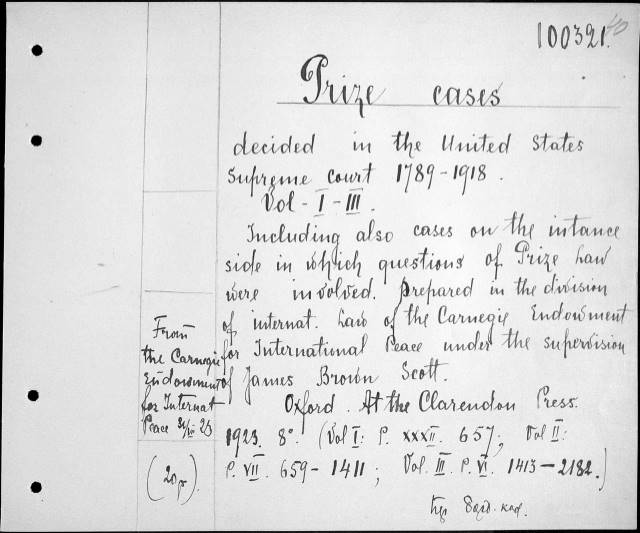 100321.
40
Prize cases
decided in the United States
Supreme court 1789-1918.
Vol - I - III.
Including also cases on the intance
side in which questions of Prize Law
were involved. Prepared in the division
of internat. Law of the Carnegie Endowment
for International Peace under the supervision
of James Brown Scott.
Oxford. At the Clarendon Press.
1923. 8°. (Vol I: P. XXXII. 657; Vol II:
P. VII. 659-1411; Vol. III. P. VI. 1413-2182.)
From
the Carnegie
Endowment
for Internat
Peace
(20p).